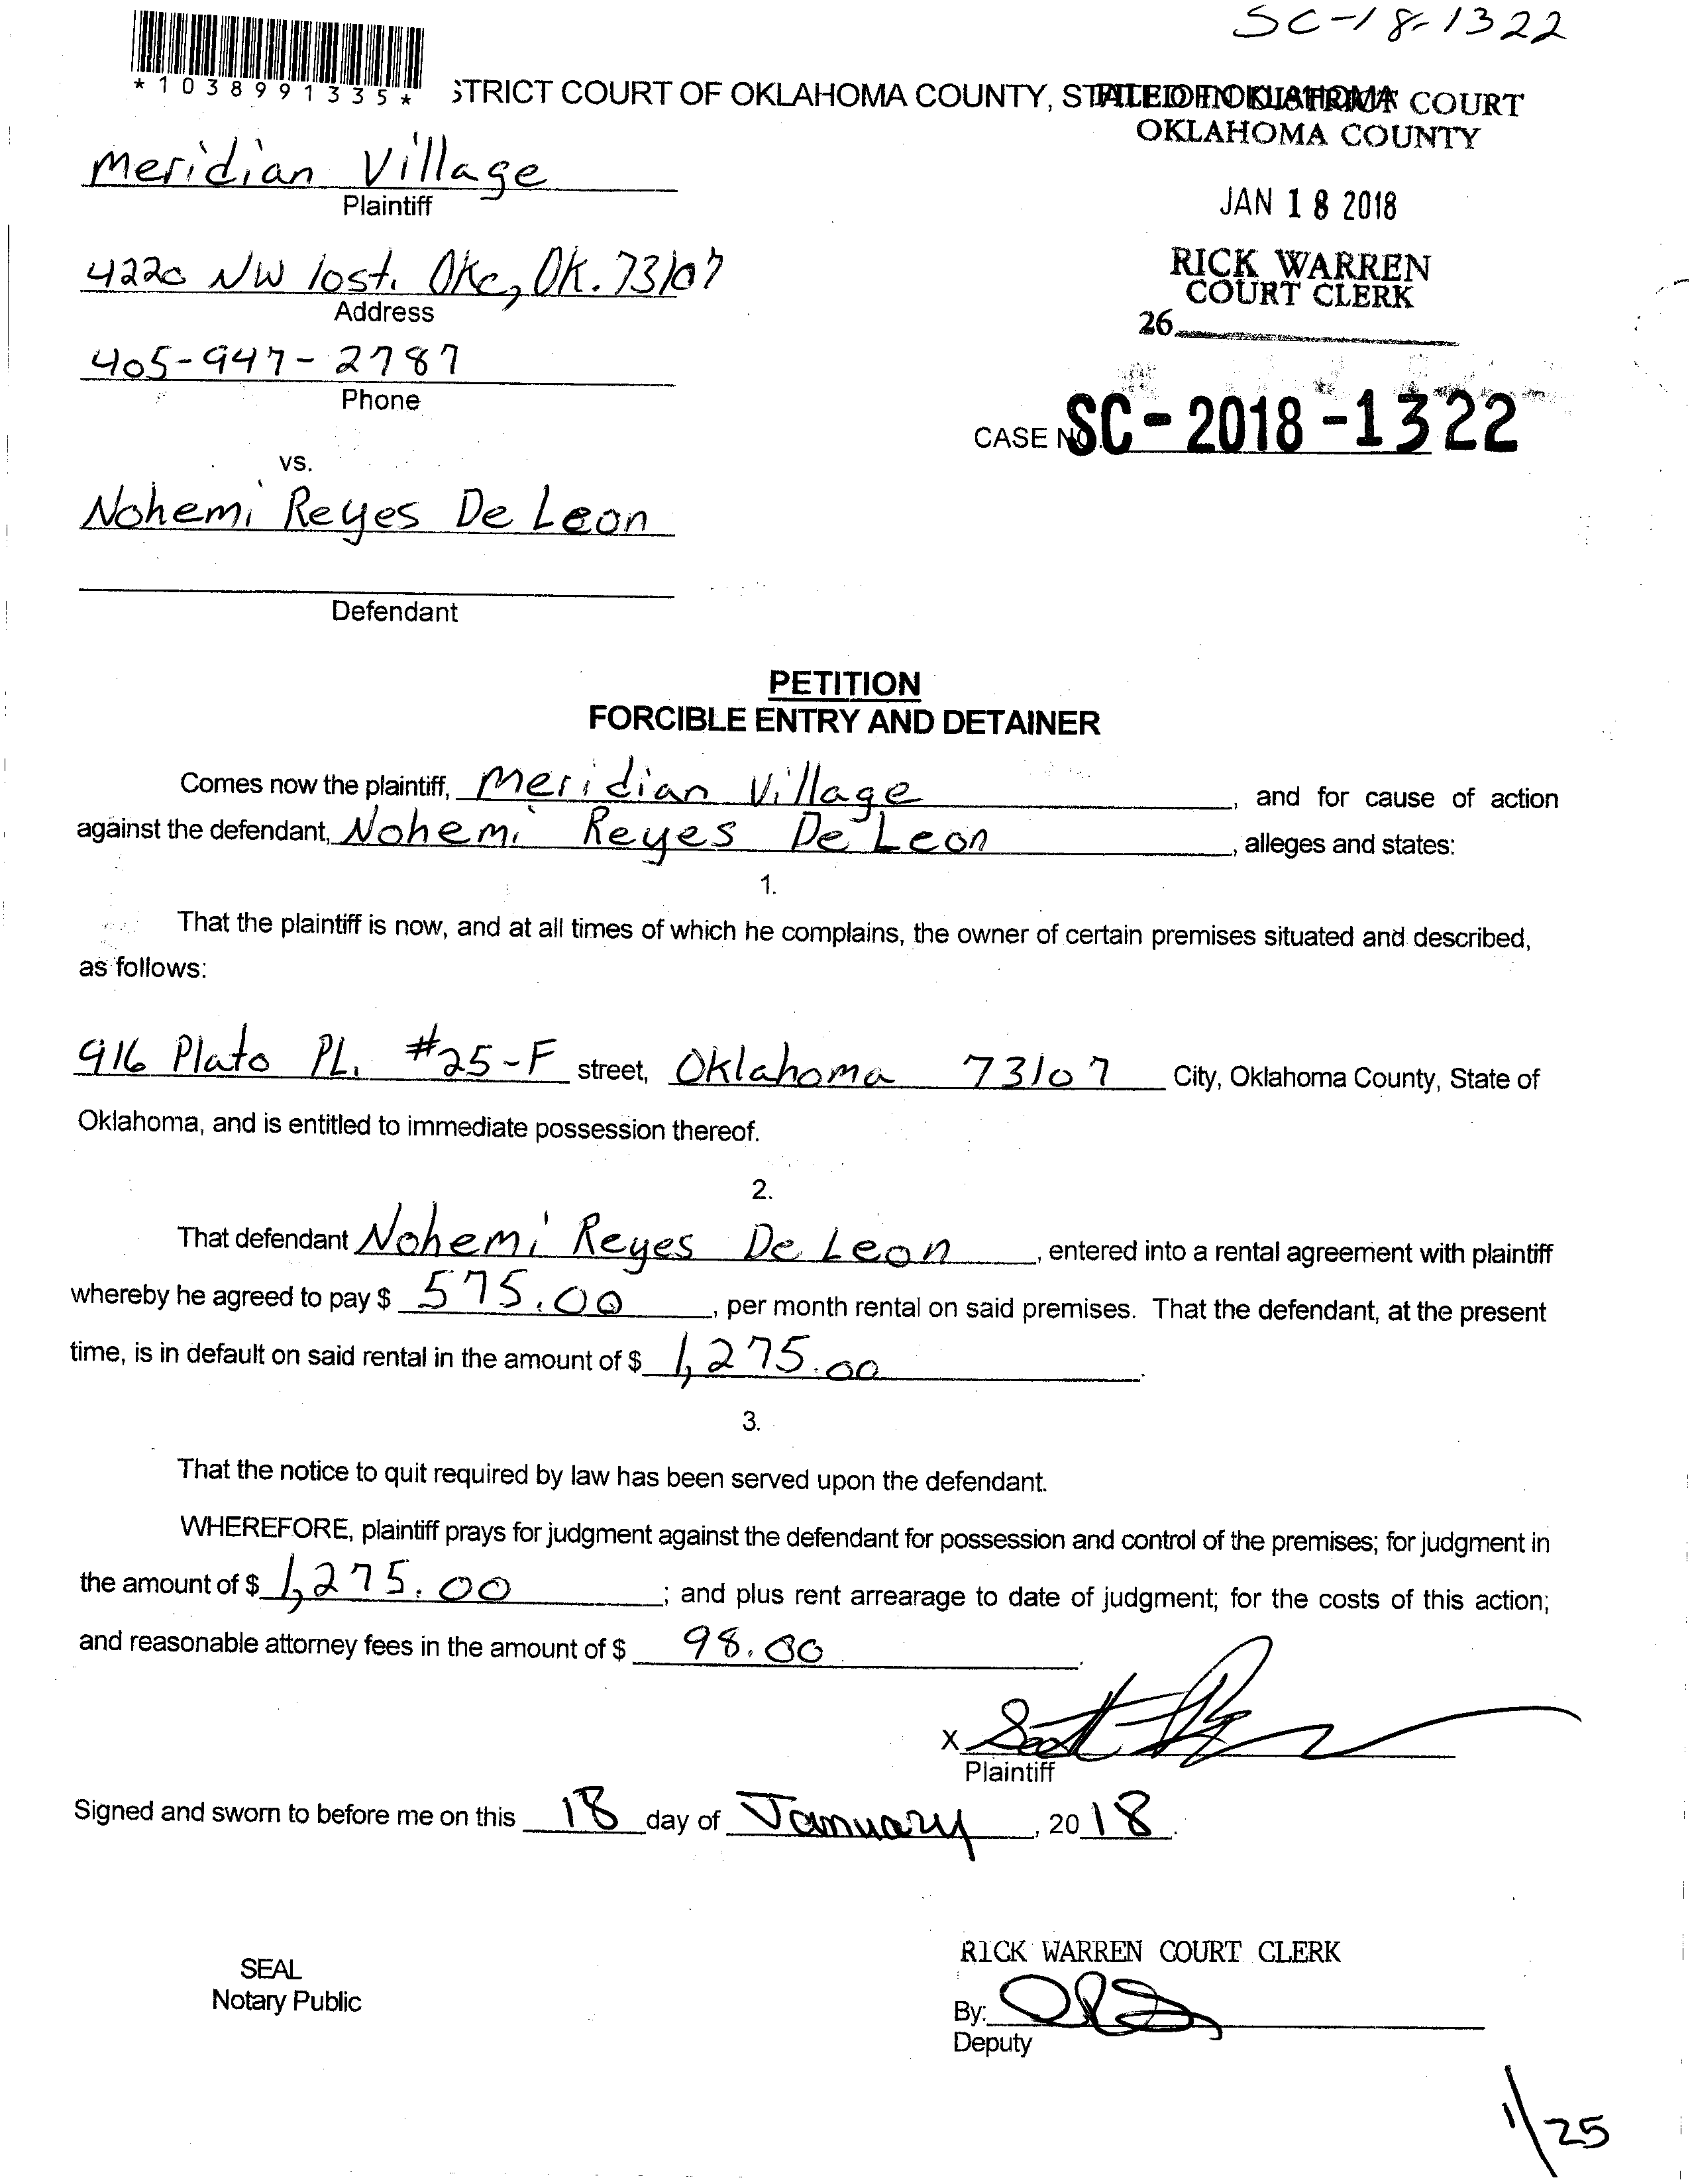 SC-18-1322
*1038991335*
STRICT COURT OF OKLAHOMA COUNTY, STATE OF OKLAHOMA
FILED IN DISTRICT COURT
OKLAHOMA COUNTY
JAN 18 2018
RICK WARREN
COURT CLERK
26
Meridian Village
Plaintiff
4220 NW 10st. OKc, OK. 73107
Address
405-947-2787
Phone
CASE NO. SC-2018-1322
vs.
Nohemi Reyes De Leon
Defendant
PETITION
FORCIBLE ENTRY AND DETAINER
Comes now the plaintiff, Meridian Village, and for cause of action
against the defendant, Nohemi Reyes De Leon, alleges and states:
1.
That the plaintiff is now, and at all times of which he complains, the owner of certain premises situated and described,
as follows:
916 Plato PL. #25-F street, Oklahoma 73107 City, Oklahoma County, State of
Oklahoma, and is entitled to immediate possession thereof.
2.
That defendant Nohemi Reyes De Leon, entered into a rental agreement with plaintiff
whereby he agreed to pay $ 575.00, per month rental on said premises. That the defendant, at the present
time, is in default on said rental in the amount of $ 1,275.00.
3.
That the notice to quit required by law has been served upon the defendant.
WHEREFORE, plaintiff prays for judgment against the defendant for possession and control of the premises; for judgment in
the amount of $ 1,275.00; and plus rent arrearage to date of judgment; for the costs of this action;
and reasonable attorney fees in the amount of $ 98.00.
X
Plaintiff
Signed and sworn to before me on this 18 day of January, 2018.
RICK WARREN COURT CLERK
SEAL
Notary Public
By:
Deputy
1/25